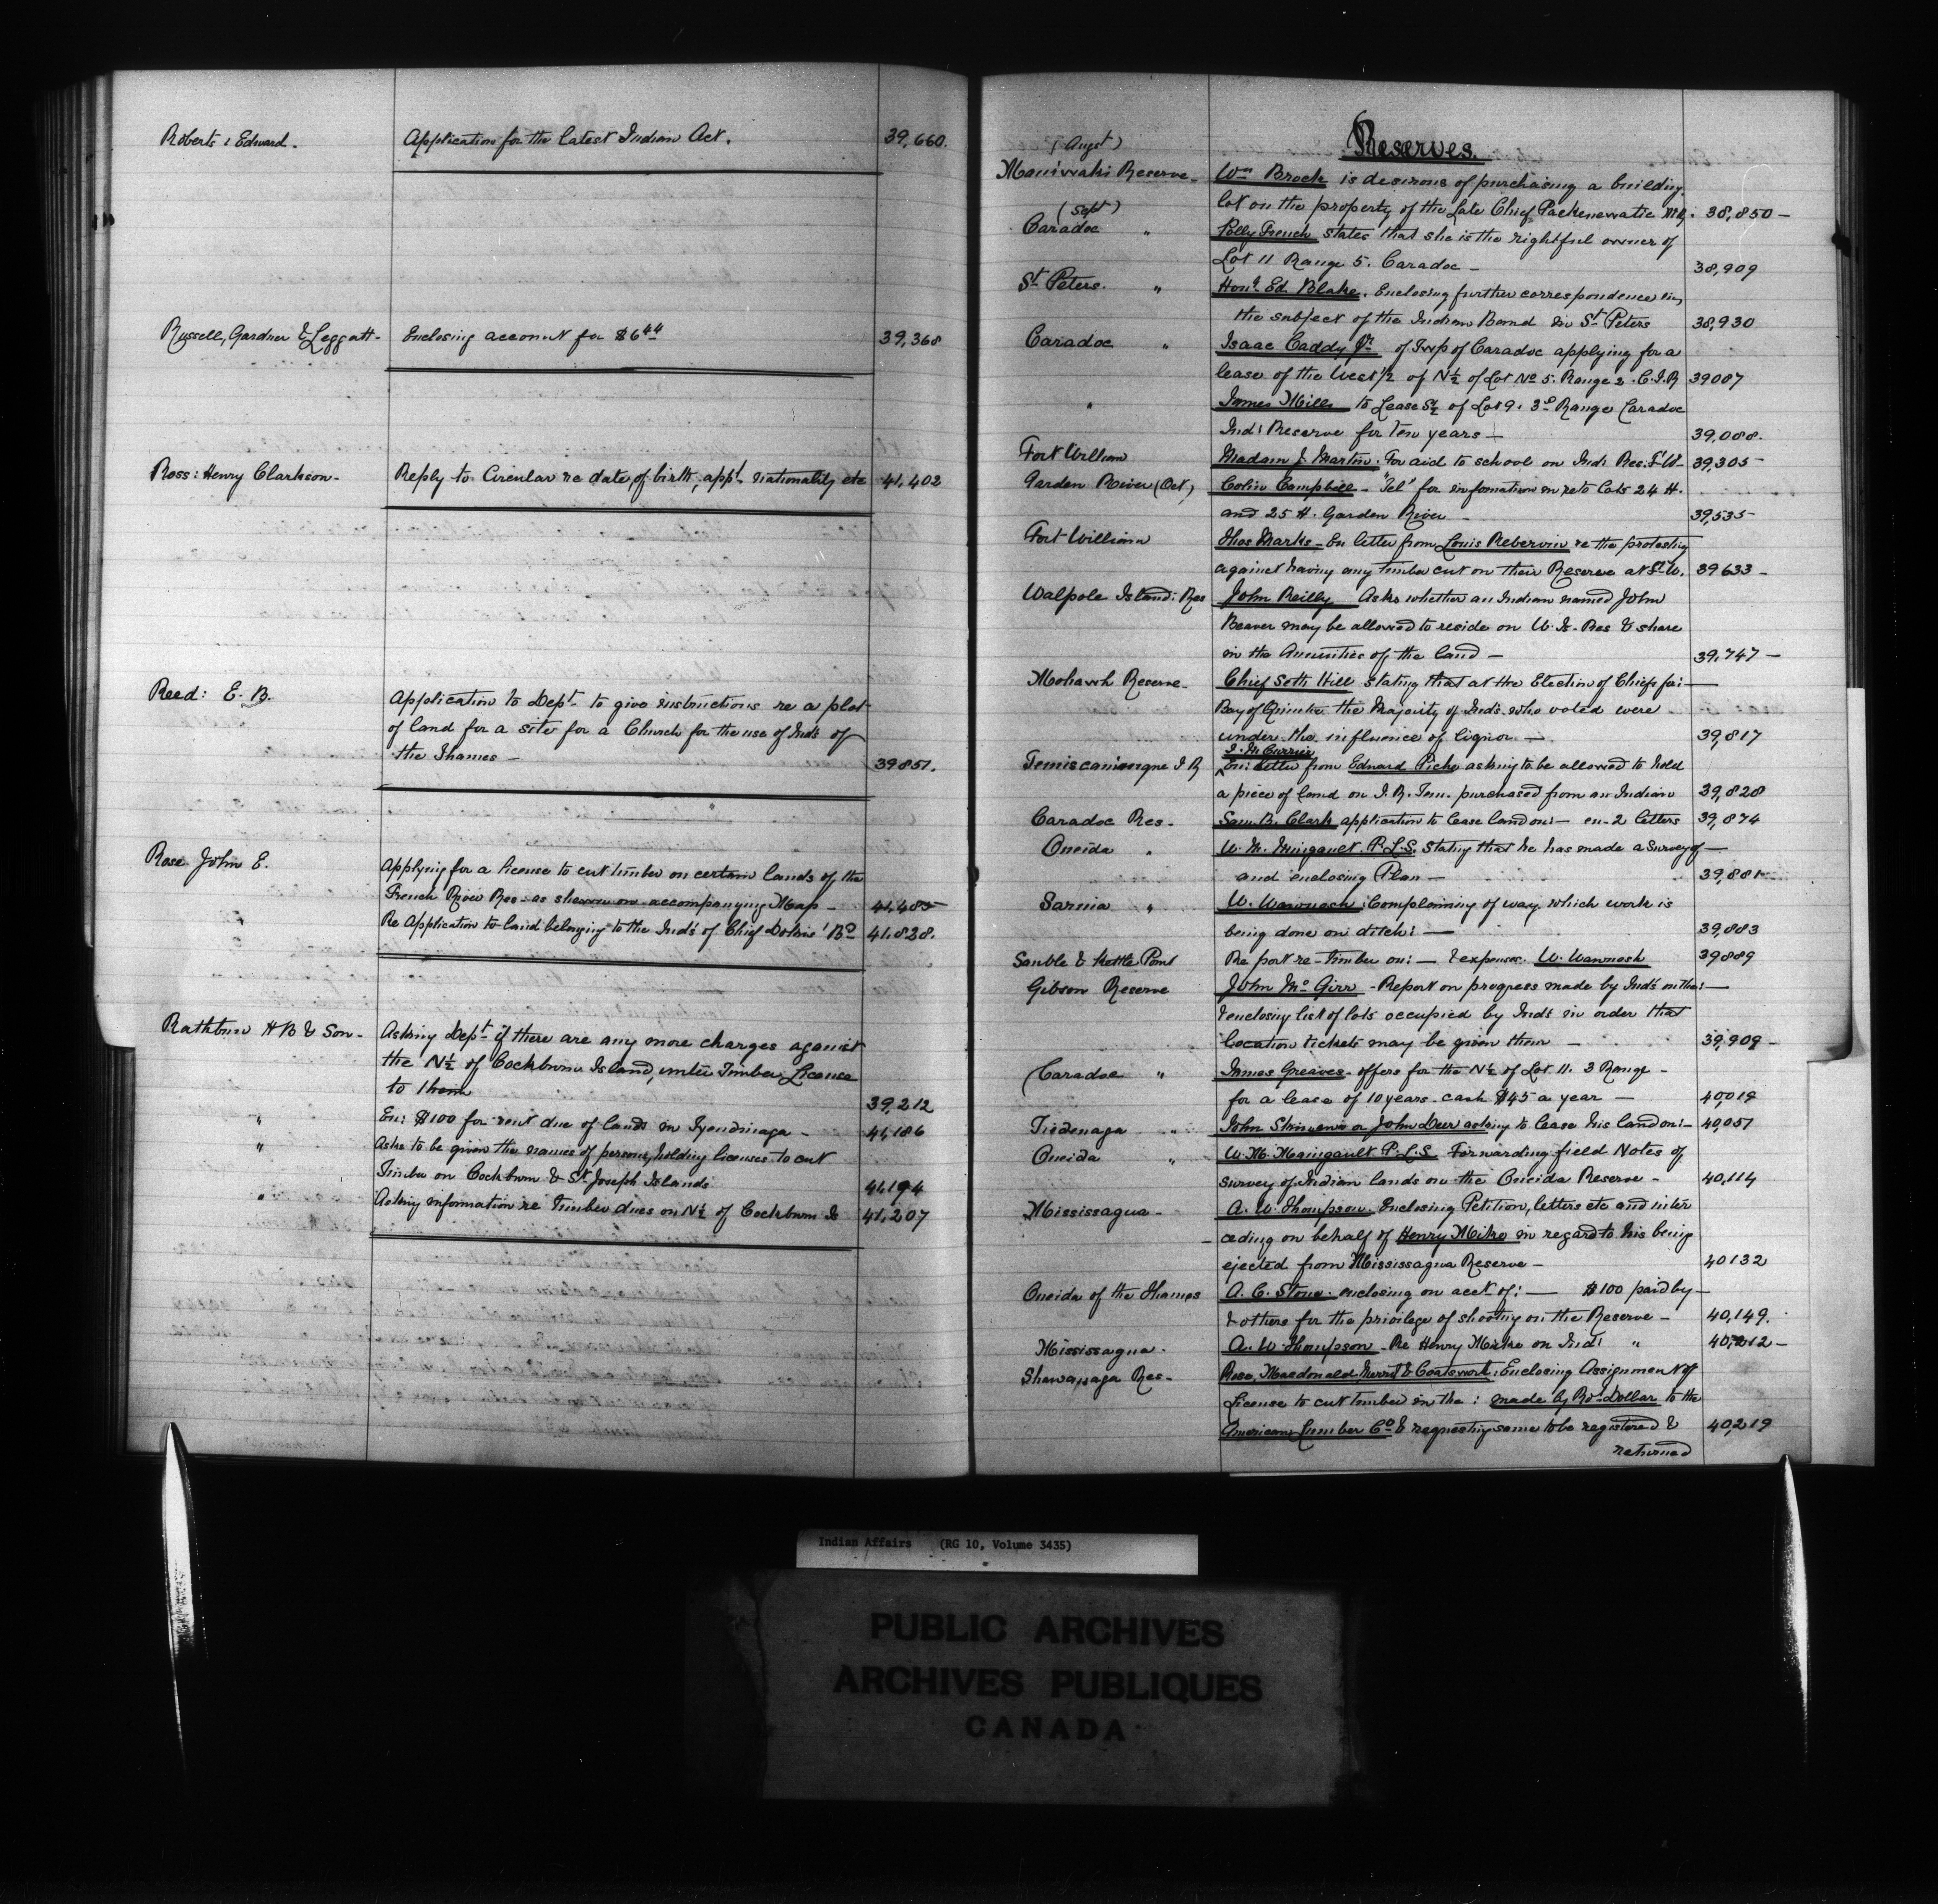 Roberts : Edward. Application for the latest Indian Act. 39,660.
Russell, Gardner & Leggatt- Enclosing account for $6.44 39,368
Ross : Henry Clarkson- Reply to Circular re date, of birth, appt. nationality etc 41,402
Reed: E. B. Application to Dept. to give instructions re a plot
of land for a site for a Church for the use of Inds of
the Thames - 39851.
Rose John E. Applying for a license to cut timber on certain lands of the
French River Res- as shewn on accompanying Map - 41,485
Re Application to land belonging to the Inds of Chief Dokis' Bd 41,828.
Rathbun H B & Son- Asking Dept if there are any more charges against
the N½ of Cockburn Island, under Timber License
to them 39,212
" En: $100 for rent due of lands in Tyendinaga - 41,186
" Asks to be given the names of persons, holding licenses to cut
Timber on Cockburn & St Joseph Islands 41,194
" Asking information re Timber dues on N½ of Cockburn Is 41,207
Reserves.
(Augst)
Maniwaki Reserve- Wm Brock is desirous of purchasing a building
lot on the property of the Late Chief 38,850-
(Sept)
Caradoc " Polly French states that she is the rightful owner of
Lot 11 Range 5. Caradoc- 38,909
St Peters. " Honl. Ed Blake. Enclosing further correspondence on
the subject of the Indian Band in St Peters 38,930
Caradoc " Isaac Caddy Jr. of Twp of Caradoc applying for a
lease of the West ½ of N½ of Lot No 5. Range 2. C.I.R 39007
" James Mills to Lease S½ of Lot 9. 3d Range Caradoc
Ind: Reserve for Ten years- 39,088.
Fort William Madam J. Martin: For aid to school on Ind: Res. F.W- 39,305-
Garden River (Oct) Colin Campbell- "Tel" for infomation in re to Lots 24 H.
and 25 H. Garden River - 39,535-
Fort William Thos Marks- En letter from Louis re the protesting
against having any timber cut on their Reserve at Ft W. 39633-
Walpole Island: Res John Reilly Asks whether an Indian named John
Beaver may be allowed to reside on W. Is. Res & share
in the Annuities of the land- 39,747-
Mohawk Reserve- Chief Seth Hill stating that at the Election of Chiefs for:-
Bay of Quinte the Majority of Inds. who voted were
under the influence of liquor.- 39,817
J. M. Currier
Temiscamingue I R En: letter from Edward Piche asking to be allowed to hold
a piece of land on I. R. Tem. purchased from an Indian 39,828
Caradoc Res- Sam. B. Clark application to lease land on:- en-2 letters 39,874
Oneida " W. M. P.L.S. Stating that he has made a Survey of-
and enclosing Plan- 39,881
Sarnia " W. Wawnosh: Complaining of way which work is
being done on ditch:- 39,883
Sauble & Kettle Point Report re-timber on:- & expenses. W. Wawnosh 39889
Gibson Reserve John McGirr - Report on progress made by Inds on the:-
& enclosing list of lots occupied by Inds in order that
location tickets may be given them - 39,909-
Caradoc " James Greaves- offers for the N½ of Lot 11. 3 Range -
for a lease of 10 years. cash $45 a year - 40,019
" John or John Deer asking to lease his land on:- 40,051
Oneida " W. M. P.L.S. Forwarding field Notes of
survey of Indian lands on the Oneida Reserve- 40,114
Mississagua- A. W. Thompson. Enclosing Petition, letters etc and inter
ceding on behalf of Henry Mike in regard to his being
ejected from Mississagua Reserve- 40132
Oneida of the Thames A. C. Stone. enclosing on acct of:- $100 paid by-
& others for the privilege of shooting on the Reserve- 40,149.
Mississagua. A. W Thompson- Re Henry Mike on Ind: " 40,212-
Shawanaga Res- Rose, Macdonald Merritt & Coatsworth: Enclosing Assignment of
License to cut timber in the: made by Rot. Dollar to the
American Lumber Co & requesting same to be registered & 40,219
returned
Indian Affairs (RG 10, Volume 3435)
PUBLIC ARCHIVES
ARCHIVES PUBLIQUES
CANADA